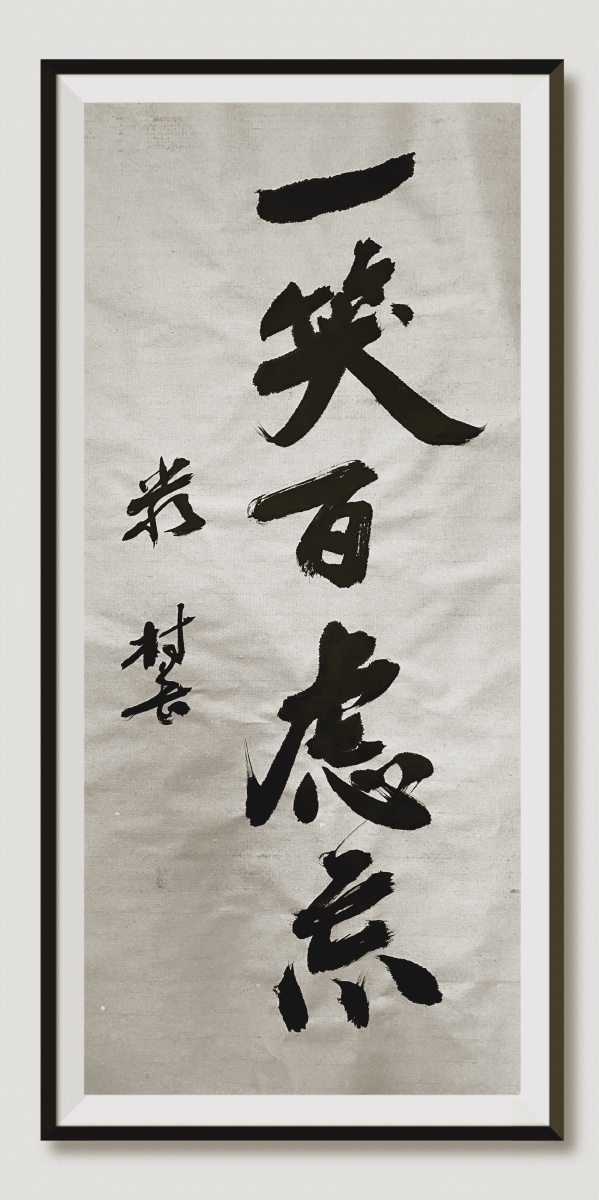 一笑百慮忘
村書